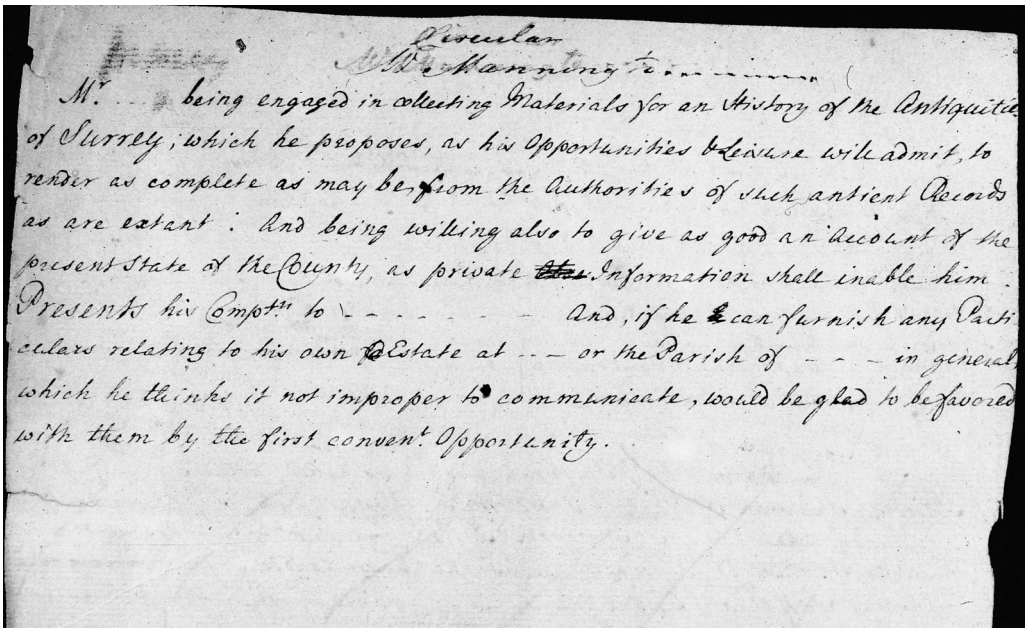 Circular
Mr. Manning's ............
Mr. .... being engaged in collecting Materials for an History of the Antiquities
of Surrey; which he proposes, as his Opportunities & Leisure will admit, to
render as complete as may be, from the Authorities of such antient Records
as are extant: And being willing also to give as good an Account of the
present State of the County, as private Information shall inable him.
Presents his Complts. to - - - - - - - And, if he can furnish any Parti
culars relating to his own Estate at --- or the Parish of - - - in general,
which he thinks it not improper to communicate, would be glad to be favored
with them by the first convent. Opportunity.